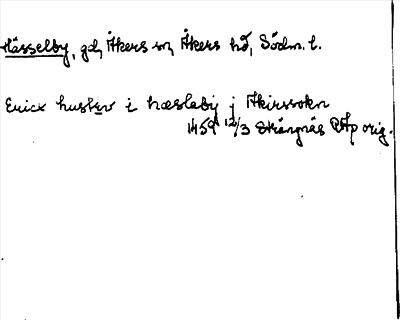 Hässelby, gd, Åkers sn, Åkers hd, Södm. l.
Erick husbw i hæslaby j Akirssokn
1459 12/3 Strängnäs RAp orig.